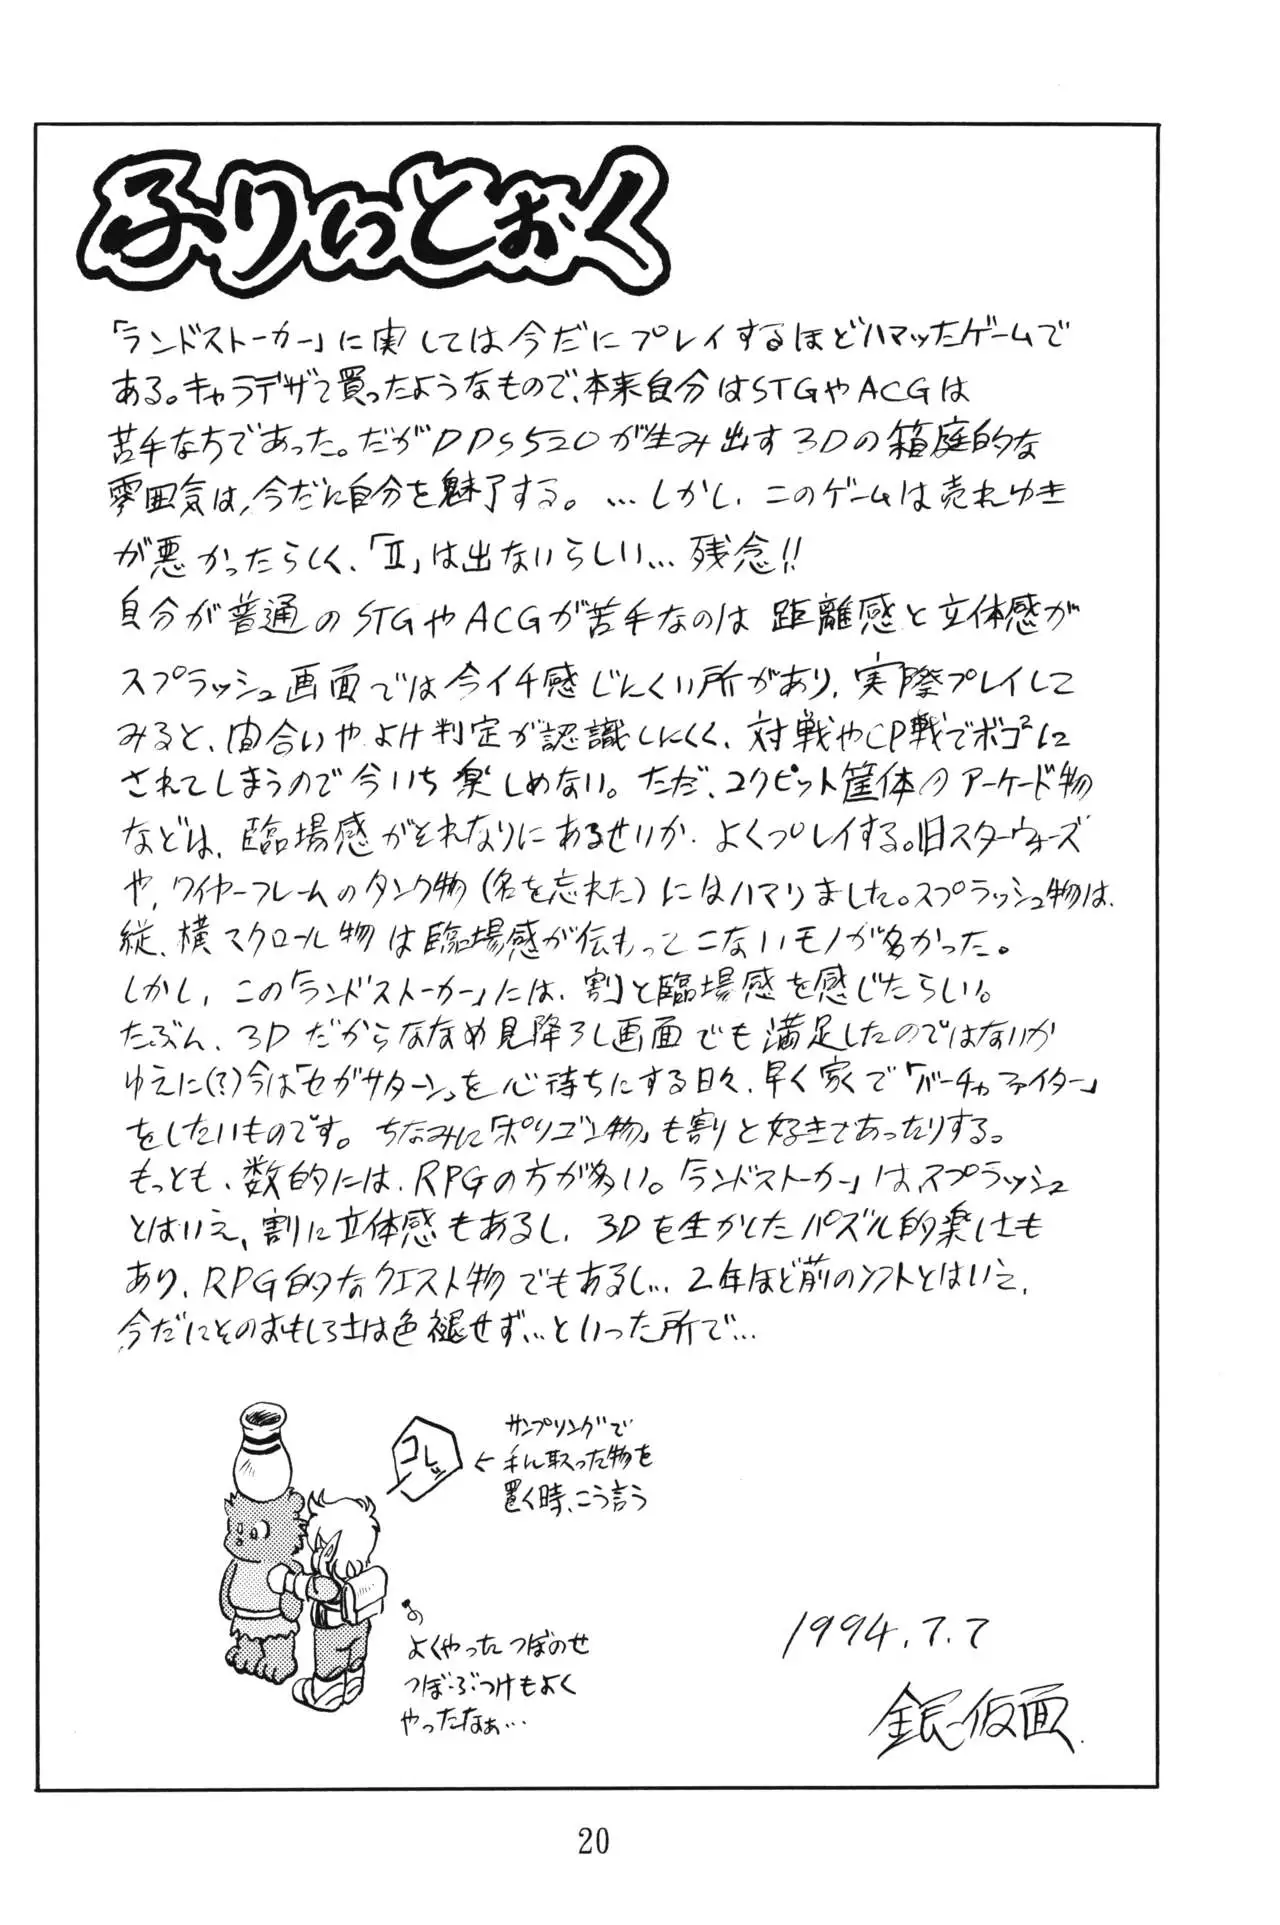 ふりいとおく
「ランドストーカー」に実しては今だにプレイするほどハマッたゲームで
ある。キャラデザで買ったようなもので、本来自分はSTGやACGは
苦手な方であった。だがDDS520が生み出す3Dの箱庭的な
雰囲気は、今だに自分を魅了する。…しかし、このゲームは売れゆき
が悪かったらしく、「Ⅱ」は出ないらしい…残念!!
自分が普通のSTGやACGが苦手なのは距離感と立体感が
スプラッシュ画面では今イチ感じにくい所があり、実際プレイして
みると、間合いやよけ判定が認識しにくく、対戦やCP戦でボコ²に
されてしまうので今いち楽しめない。ただ、コクピット筐体のアーケード物
などは、臨場感がそれなりにあるせいか、よくプレイする。旧スターウォーズ
や、ワイヤーフレームのタンク物(名を忘れた)にはハマりました。スプラッシュ物は、
縦、横スクロール物は臨場感が伝もってこないモノが多かった。
しかし、この「ランドストーカー」には、割と臨場感を感じたらしい。
たぶん、3Dだからななめ見降ろし画面でも満足したのではないか
ゆえに(?)今は「セガサターン」を心待ちにする日々、早く家で「バーチャファイター」
をしたいものです。ちなみに「ポリゴン物」も割と好きであったりする。
もっとも、数的には、RPGの方が多い。「ランドストーカー」は、スプラッシュ
とはいえ、割に立体感もあるし、3Dを生かしたパズル的楽しさも
あり、RPG的なクエスト物でもあるし… 2年ほど前のソフトとはいえ、
今だにそのおもしろさは色褪せず…といった所で…
コレッ
サンプリングで
手に取った物を
置く時、こう言う
よくやったつぼのせ
つぼぶつけもよく
やったなぁ…
1994.7.7
銀仮面
20